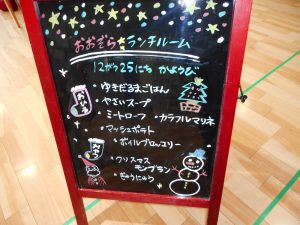 おおぞら★ランチルーム
12がつ25にち かようび
・ゆきだるまごはん
・やさいスープ
・ミートローフ ・カラフルマリネ
・マッシュポテト
・ボイルブロッコリー
・クリスマス
モンブラン
・ぎゅうにゅう